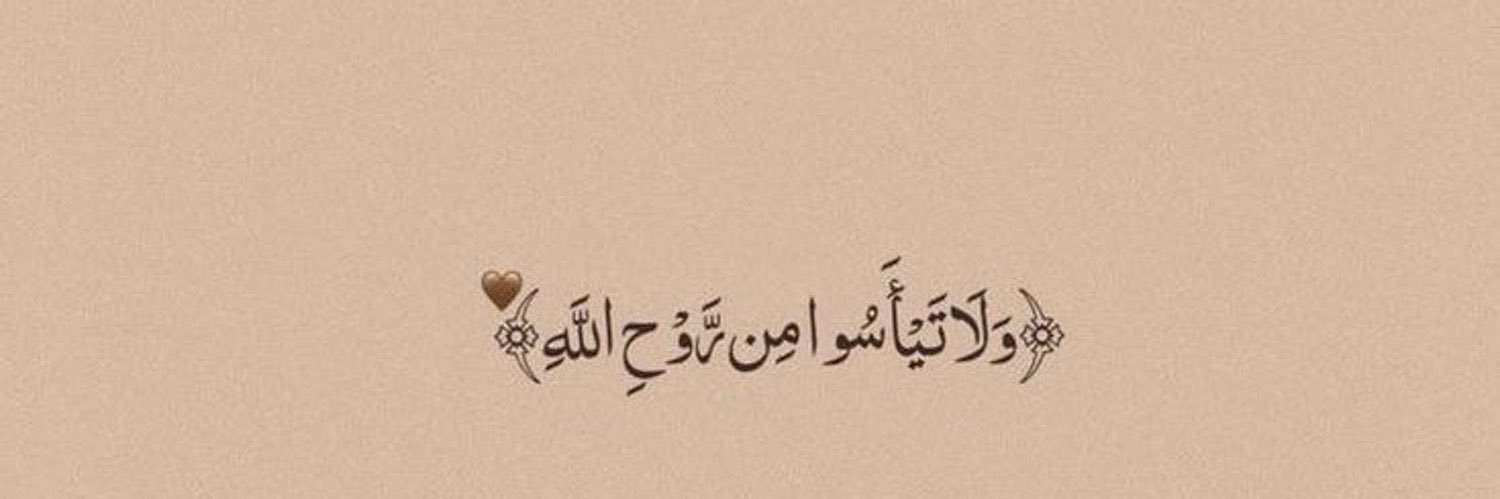 ﴿وَلَا تَيْأَسُوا مِن رَّوْحِ اللَّهِ﴾🤎